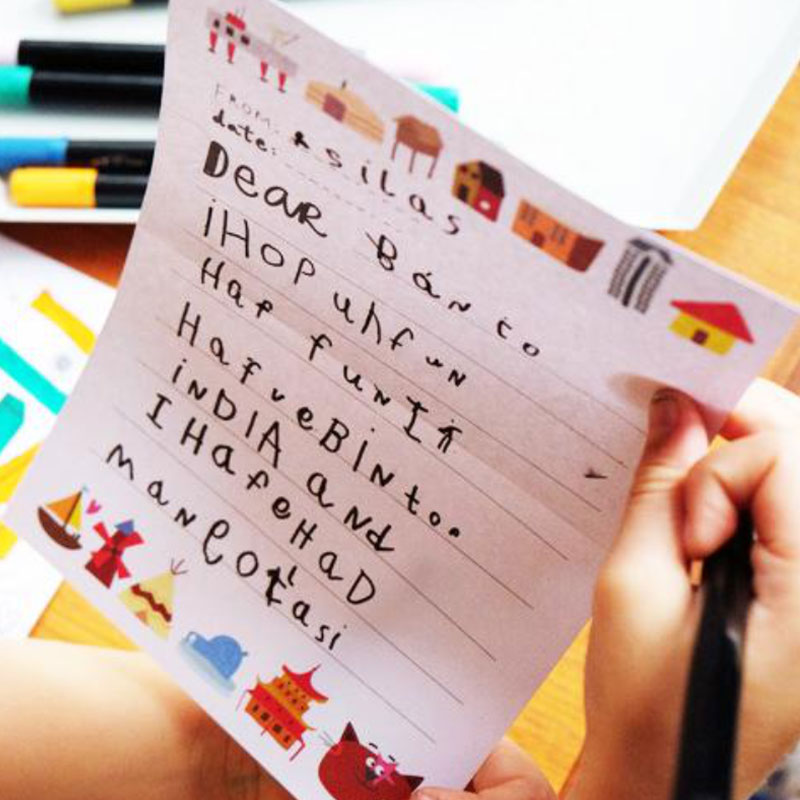 FROM: silas
date:
Dear Banto
iHOP uhfun
Haf funIt
HafveBiN to
iNDIA aNd
I HafeHaD
maNLotasi